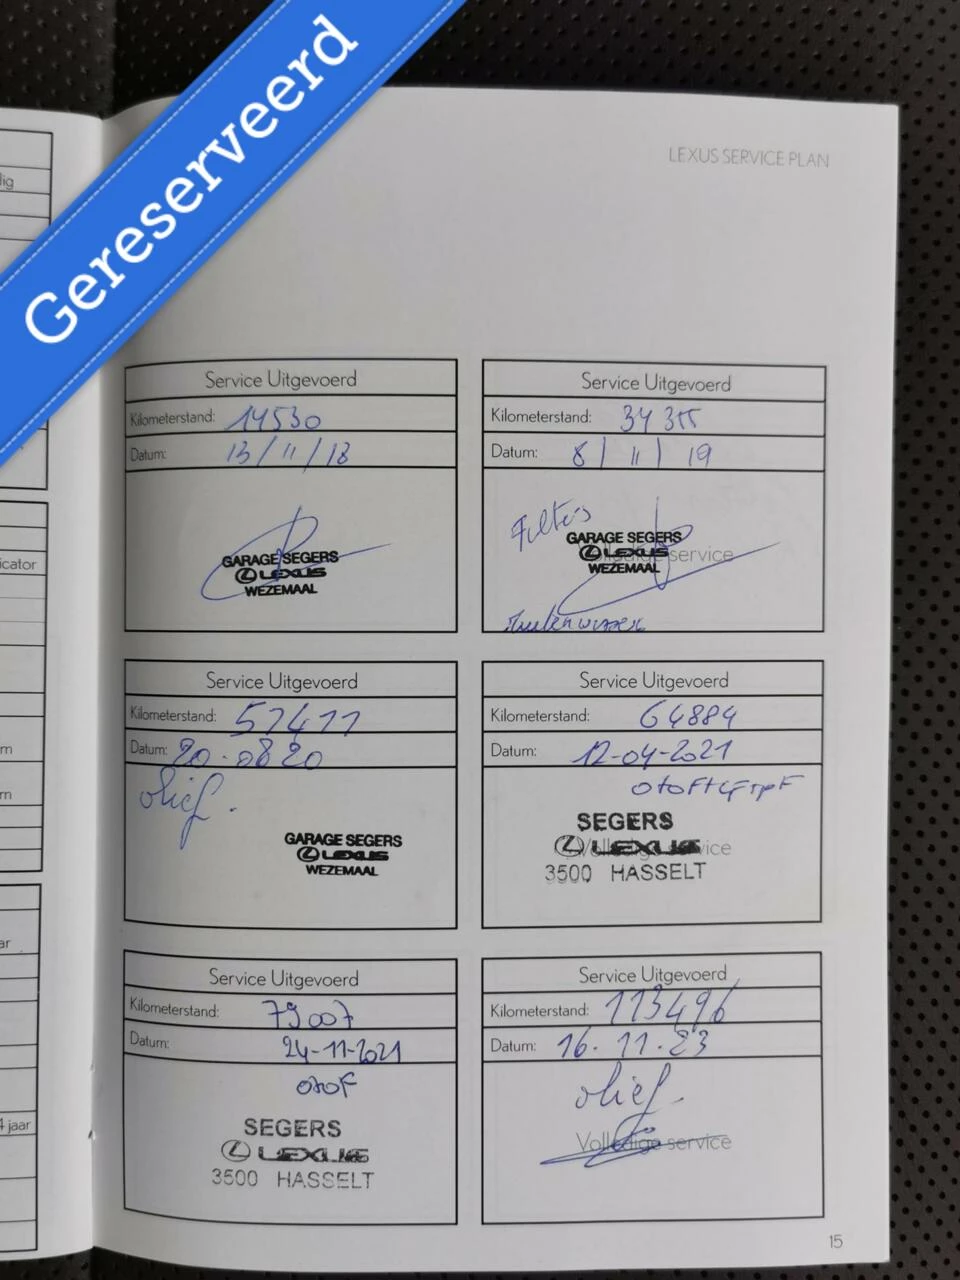 Gereserveerd
LEXUS SERVICE PLAN
dig
icator
m
rn
ar
4 jaar
Service Uitgevoerd
Kilometerstand: 14530
Datum: 13/11/18
GARAGE SEGERS
LEXUS
WEZEMAAL
Service Uitgevoerd
Kilometerstand: 34 355
Datum: 8 | 11 | 19
Filters
GARAGE SEGERS
LEXUS
Volledige service
WEZEMAAL
Ruitenwisser
Service Uitgevoerd
Kilometerstand: 57411
Datum: 20.08 20
olief.
GARAGE SEGERS
LEXUS
WEZEMAAL
Service Uitgevoerd
Kilometerstand: 64884
Datum: 12-04-2021
SEGERS
LEXUS
Volledige service
3500 HASSELT
Service Uitgevoerd
Kilometerstand: 79007
Datum: 24-11-2021
otoF
SEGERS
LEXUS
3500 HASSELT
Service Uitgevoerd
Kilometerstand: 113496
Datum: 16.11.23
olief.
Volledige service
15